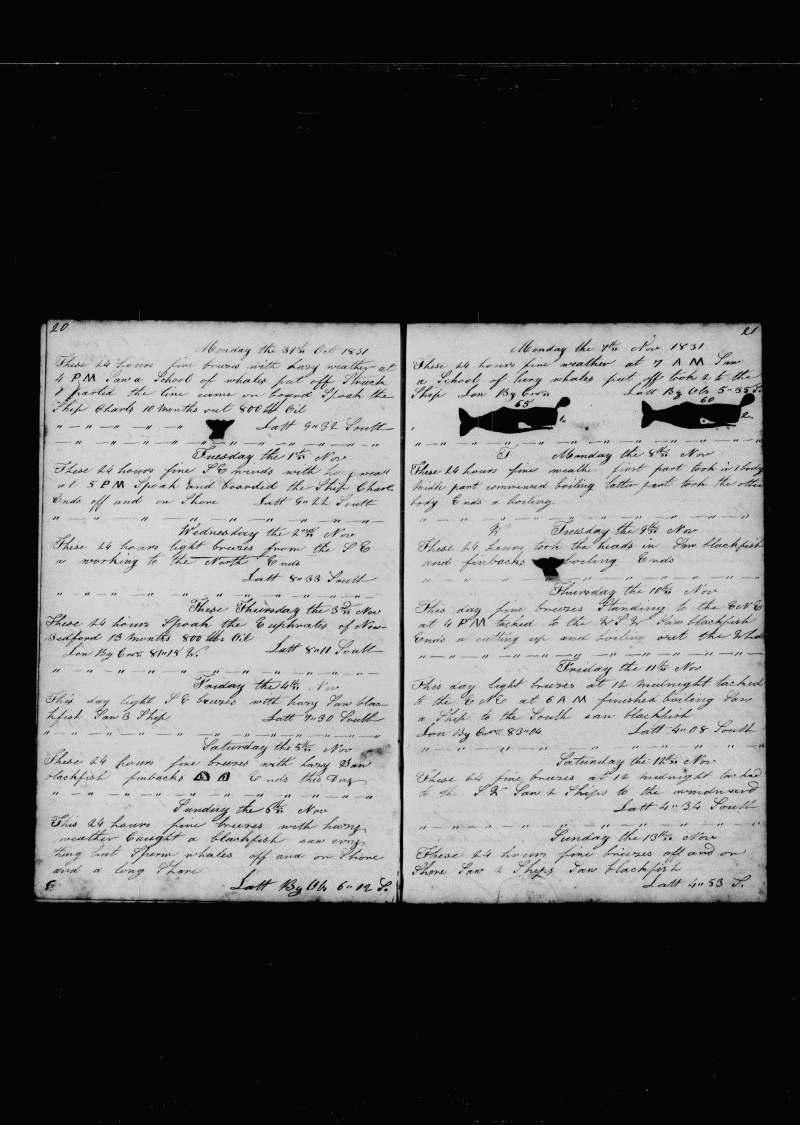 20
Monday the 31st Oct 1831
These 24 hours fine breezes with hazy weather at
4 P M Saw a School of whales put off Struck
& parted the line came on board Spoak the
Ship Charls 10 Months out 800 bbls Oil
Latt 9"32 South
Tuesday the 1st Nov
These 24 hours fine S E winds with
at 5 P M Spoak and boarded the Ship Charls
Ends off and on Shore Latt 9"22 South
Wednesday the 2nd Nov
These 24 hours light breezes from the S E
a working to the North Ends
Latt 8"33 South
These Thursday the 3rd Nov
These 24 hours Spoak the Euphrates of New-
Bedford 13 months 800 bbls Oil
Lon By Cro 81"18 W Latt 8"11 South
Friday the 4th Nov
This day light S E breezes with hazy Saw blac-
kfish Saw 3 Ship Latt 7"30 South
Saturday the 5th Nov
These 24 hours fine breezes with hazy Saw
blackfish finbacks Ends this Day
Sunday the 6th Nov
This 24 hours fine breezes with heavy
weather Caught a blackfish saw evry
thing but Sperm whales off and on Shore
and a long Shore
Latt By Ob 6"12 S.
21
Monday the 7th Nov 1831
These 24 hours fine weather at 7 A M Saw
a School of whales put off took 2 to the
Ship Lon By Cro Latt By Ob 5"35 S.
65
60
Monday the 8th Nov
These 24 hours fine weathe first part took in 1 body
Midle part commenced boiling latter part took the other
body Ends a boiling
W Tuesday the 9th Nov
These 24 hours took the heads in Saw blackfish
and finbacks boiling Ends
Thursday the 10th Nov
This day fine breezes Standing to the ENE
at 4 P M tacked to the Saw blackfish
Ends a cutting up and boiling out the Whole
Friday the 11th Nov
This day light breezes at 12 midnight tacked
to the ENE at 6 A M finished boiling Saw
a Ship to the South saw blackfish
Lon By Cro 83"04 Latt 4"08 South
Saturday the 12th Nov
These 24 fine breezes at 12 midnight tacked
to the Saw 2 Ships to the windward
Latt 4"34 South
Sunday the 13th Nov
These 24 hours fine breezes off and on
Shore Saw 2 Ships Saw blackfish
Latt 4"53 S.